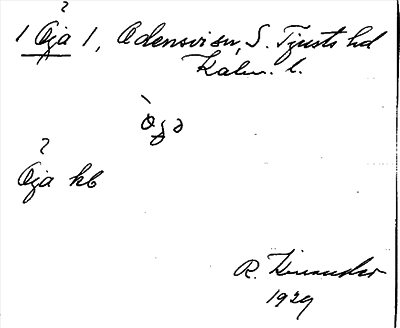 ?
1 Öja 1, Odensvi sn, S. Tjusts hd
Kalm. l.
?
Öja kb
R. Kinander
1929